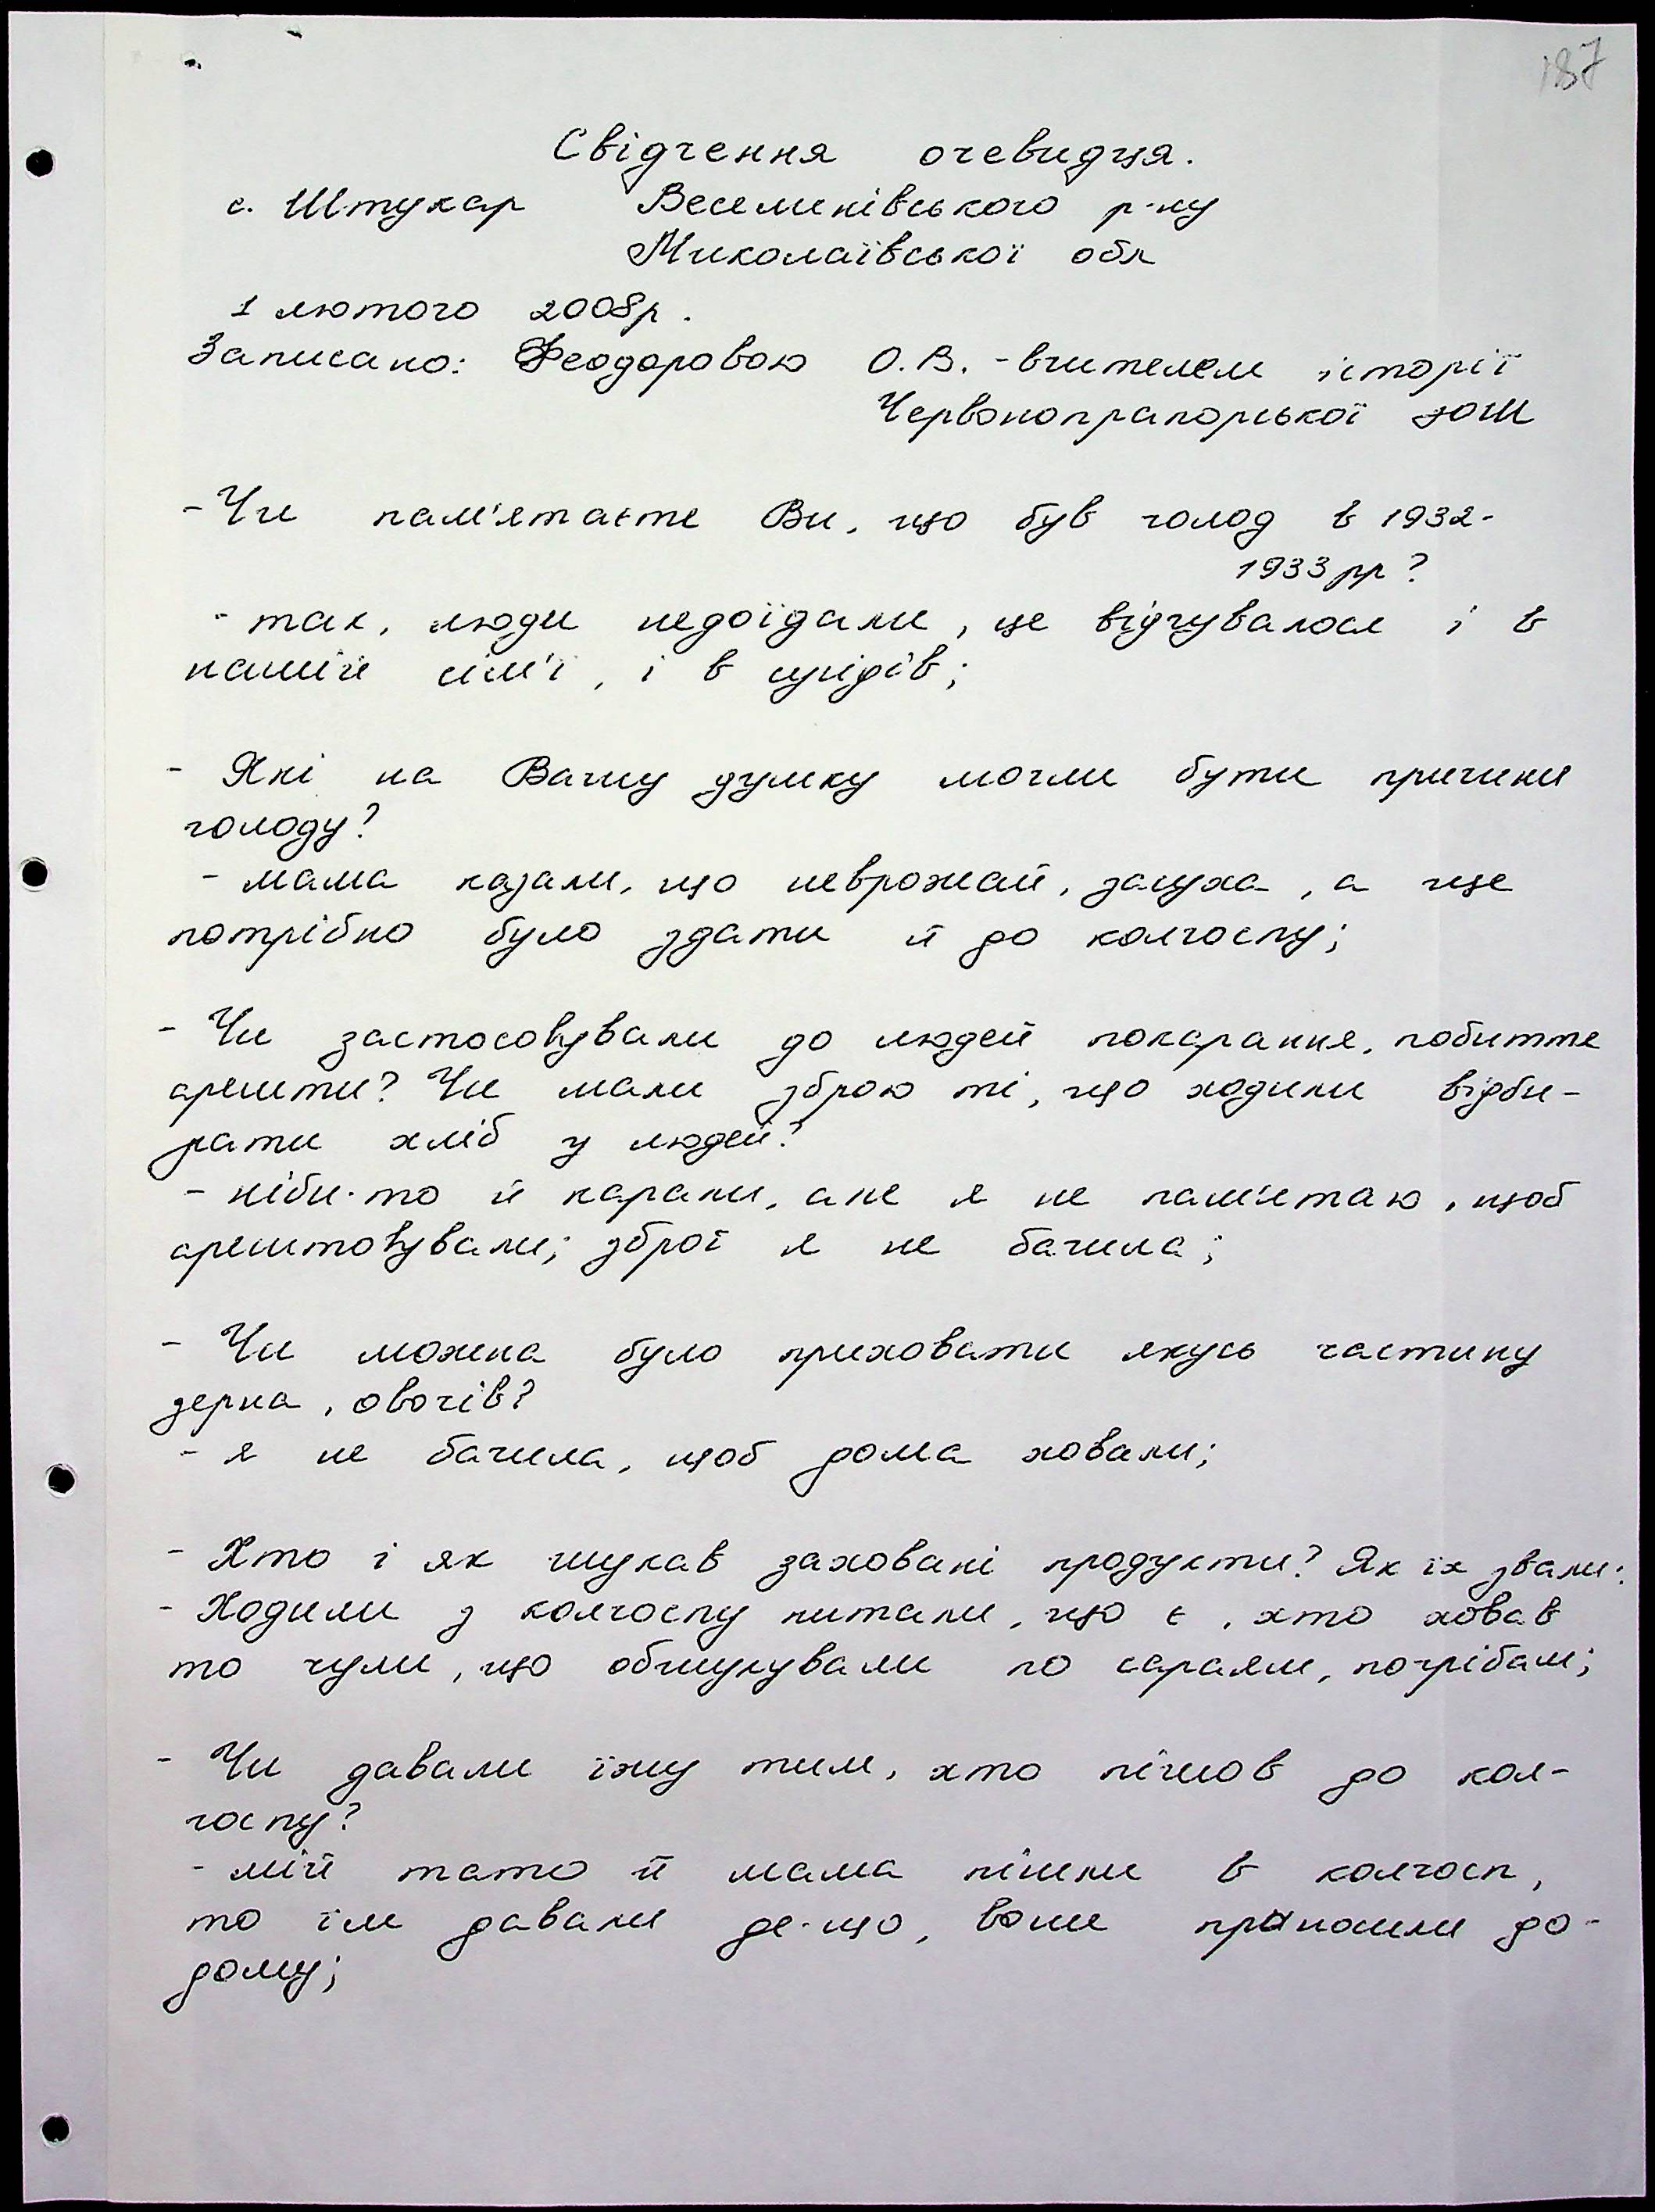 187
Свідчення очевидця.
с. Штукар Веселинівського р-ну
Миколаївської обл
1 лютого 2008р.
Записано: Феодоровою О.В. - вчителем історії
Червонопрапорської ЗОШ
- Чи пам'ятаєте Ви, що був голод в 1932-
1933 рр?
- так, люди недоїдали, це відчувалося і в
нашій сім'ї, і в сусідів;
- Які на Вашу думку могли бути причини
голоду?
- мама казали, що неврожай, засуха, а ще
потрібно було здати й до колгоспу;
- Чи застосовували до людей покарання, побиття
арешти? Чи мали зброю ті, що ходили відби-
рати хліб у людей?
- ніби-то й карали, але я не пам'ятаю, щоб
арештовували; зброї я не бачила;
- Чи можна було приховати якусь частину
зерна, овочів?
- я не бачила, щоб дома ховали;
- Хто і як шукав заховані продукти? Як їх звали?
- Ходили з колгоспу питали, що є, хто ховав
то чули, що обшукували по сараям, погрібам;
- Чи давали їжу тим, хто пішов до кол-
госпу?
- мій тато й мама пішли в колгосп,
то їм давали де-що, вони приносили до-
дому;